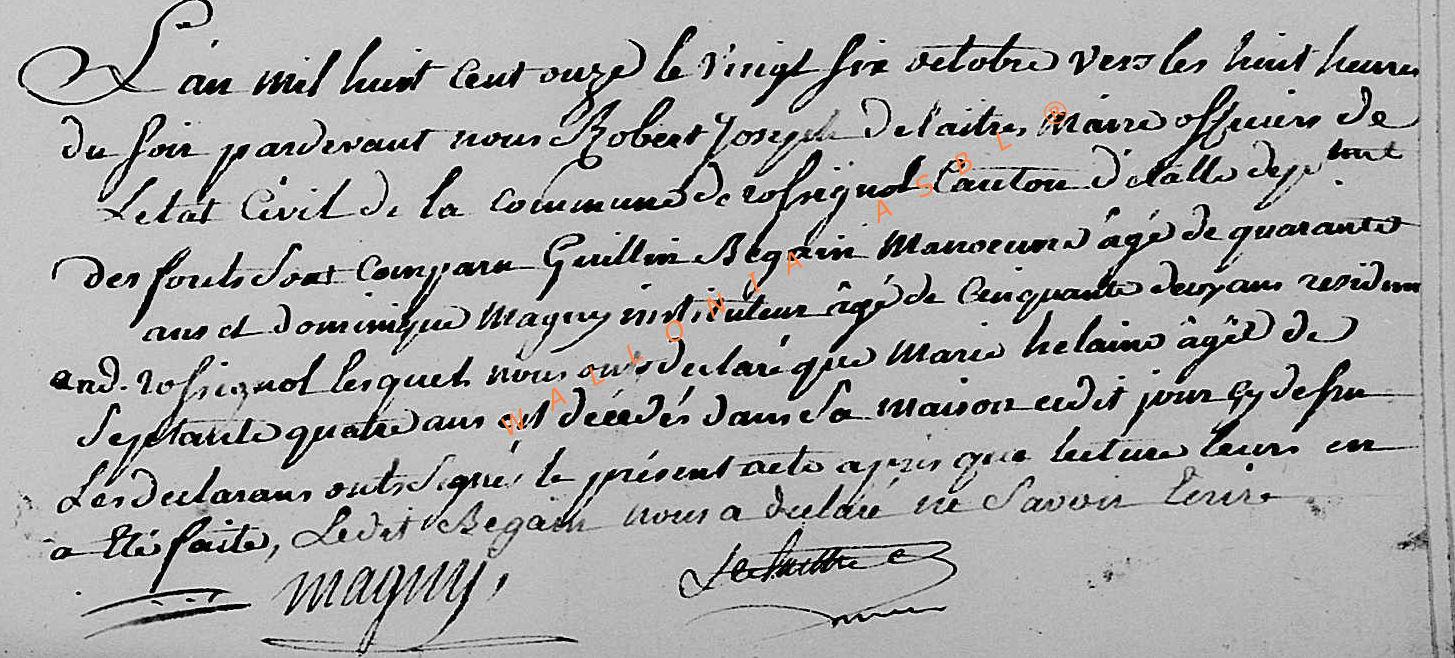 L'an mil huit cent onze le vingt six octobre vers les huit heures
du soir pardevant nous Robert Joseph Delaitre Maire officiers de
Letat Civil de la commune de rossignol Canton d'etalle dep.tmt
des forets sont comparu Guillin Begain Manoeuvre âgé de quarante
ans et dominique Magny instituteur âgé de Cinquante deux ans resident
aud. rossignol lesquels nous ont declaré que Marie helaine âgée de
Septante quatre ans est décédés dans sa maison cedit jour cy dessu
Les declarans onts signés le présent acte après que lecture leurs en
a Eté faite, Ledit Begain nous a declaré ne Savoir Ecrire
magny.
WALLONIA ASBL ®